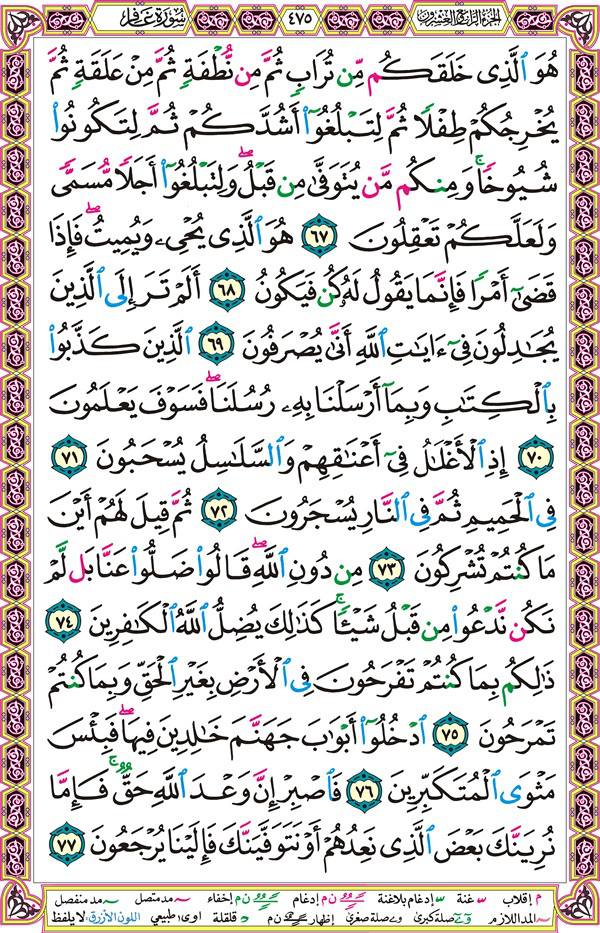 الجزء الرابع والعشرون ٤٧٥ سورة غافر
هُوَ ٱلَّذِى خَلَقَكُم مِّن تُرَابٍ ثُمَّ مِن نُّطْفَةٍ ثُمَّ مِنْ عَلَقَةٍ ثُمَّ
يُخْرِجُكُمْ طِفْلًا ثُمَّ لِتَبْلُغُوٓا۟ أَشُدَّكُمْ ثُمَّ لِتَكُونُوا۟
شُيُوخًا ۚ وَمِنكُم مَّن يُتَوَفَّىٰ مِن قَبْلُ ۖ وَلِتَبْلُغُوٓا۟ أَجَلًا مُّسَمًّى
وَلَعَلَّكُمْ تَعْقِلُونَ ٦٧ هُوَ ٱلَّذِى يُحْىِۦ وَيُمِيتُ ۖ فَإِذَا
قَضَىٰٓ أَمْرًا فَإِنَّمَا يَقُولُ لَهُۥ كُن فَيَكُونُ ٦٨ أَلَمْ تَرَ إِلَى ٱلَّذِينَ
يُجَادِلُونَ فِىٓ ءَايَاتِ ٱللَّهِ أَنَّىٰ يُصْرَفُونَ ٦٩ ٱلَّذِينَ كَذَّبُوا۟
بِٱلْكِتَابِ وَبِمَآ أَرْسَلْنَا بِهِۦ رُسُلَنَا ۖ فَسَوْفَ يَعْلَمُونَ
٧٠ إِذِ ٱلْأَغْلَالُ فِىٓ أَعْنَاقِهِمْ وَٱلسَّلَاسِلُ يُسْحَبُونَ ٧١
فِى ٱلْحَمِيمِ ثُمَّ فِى ٱلنَّارِ يُسْجَرُونَ ٧٢ ثُمَّ قِيلَ لَهُمْ أَيْنَ
مَا كُنتُمْ تُشْرِكُونَ ٧٣ مِن دُونِ ٱللَّهِ ۖ قَالُوا۟ ضَلُّوا۟ عَنَّا بَل لَّمْ
نَكُن نَّدْعُوا۟ مِن قَبْلُ شَيْـًٔا ۚ كَذَٰلِكَ يُضِلُّ ٱللَّهُ ٱلْكَافِرِينَ ٧٤
ذَٰلِكُم بِمَا كُنتُمْ تَفْرَحُونَ فِى ٱلْأَرْضِ بِغَيْرِ ٱلْحَقِّ وَبِمَا كُنتُمْ
تَمْرَحُونَ ٧٥ ٱدْخُلُوٓا۟ أَبْوَابَ جَهَنَّمَ خَالِدِينَ فِيهَا ۖ فَبِئْسَ
مَثْوَى ٱلْمُتَكَبِّرِينَ ٧٦ فَٱصْبِرْ إِنَّ وَعْدَ ٱللَّهِ حَقٌّ ۚ فَإِمَّا
نُرِيَنَّكَ بَعْضَ ٱلَّذِى نَعِدُهُمْ أَوْ نَتَوَفَّيَنَّكَ فَإِلَيْنَا يُرْجَعُونَ ٧٧
م إقلاب س غنة س إدغام بلاغنة ن م إدغام ن م إخفاء مد متصل مد منفصل
المد اللازم صلة كبرى صلة صغرى إظهار ن م قلقلة اوى طبيعي اللون الأزرق: لا يلفظ